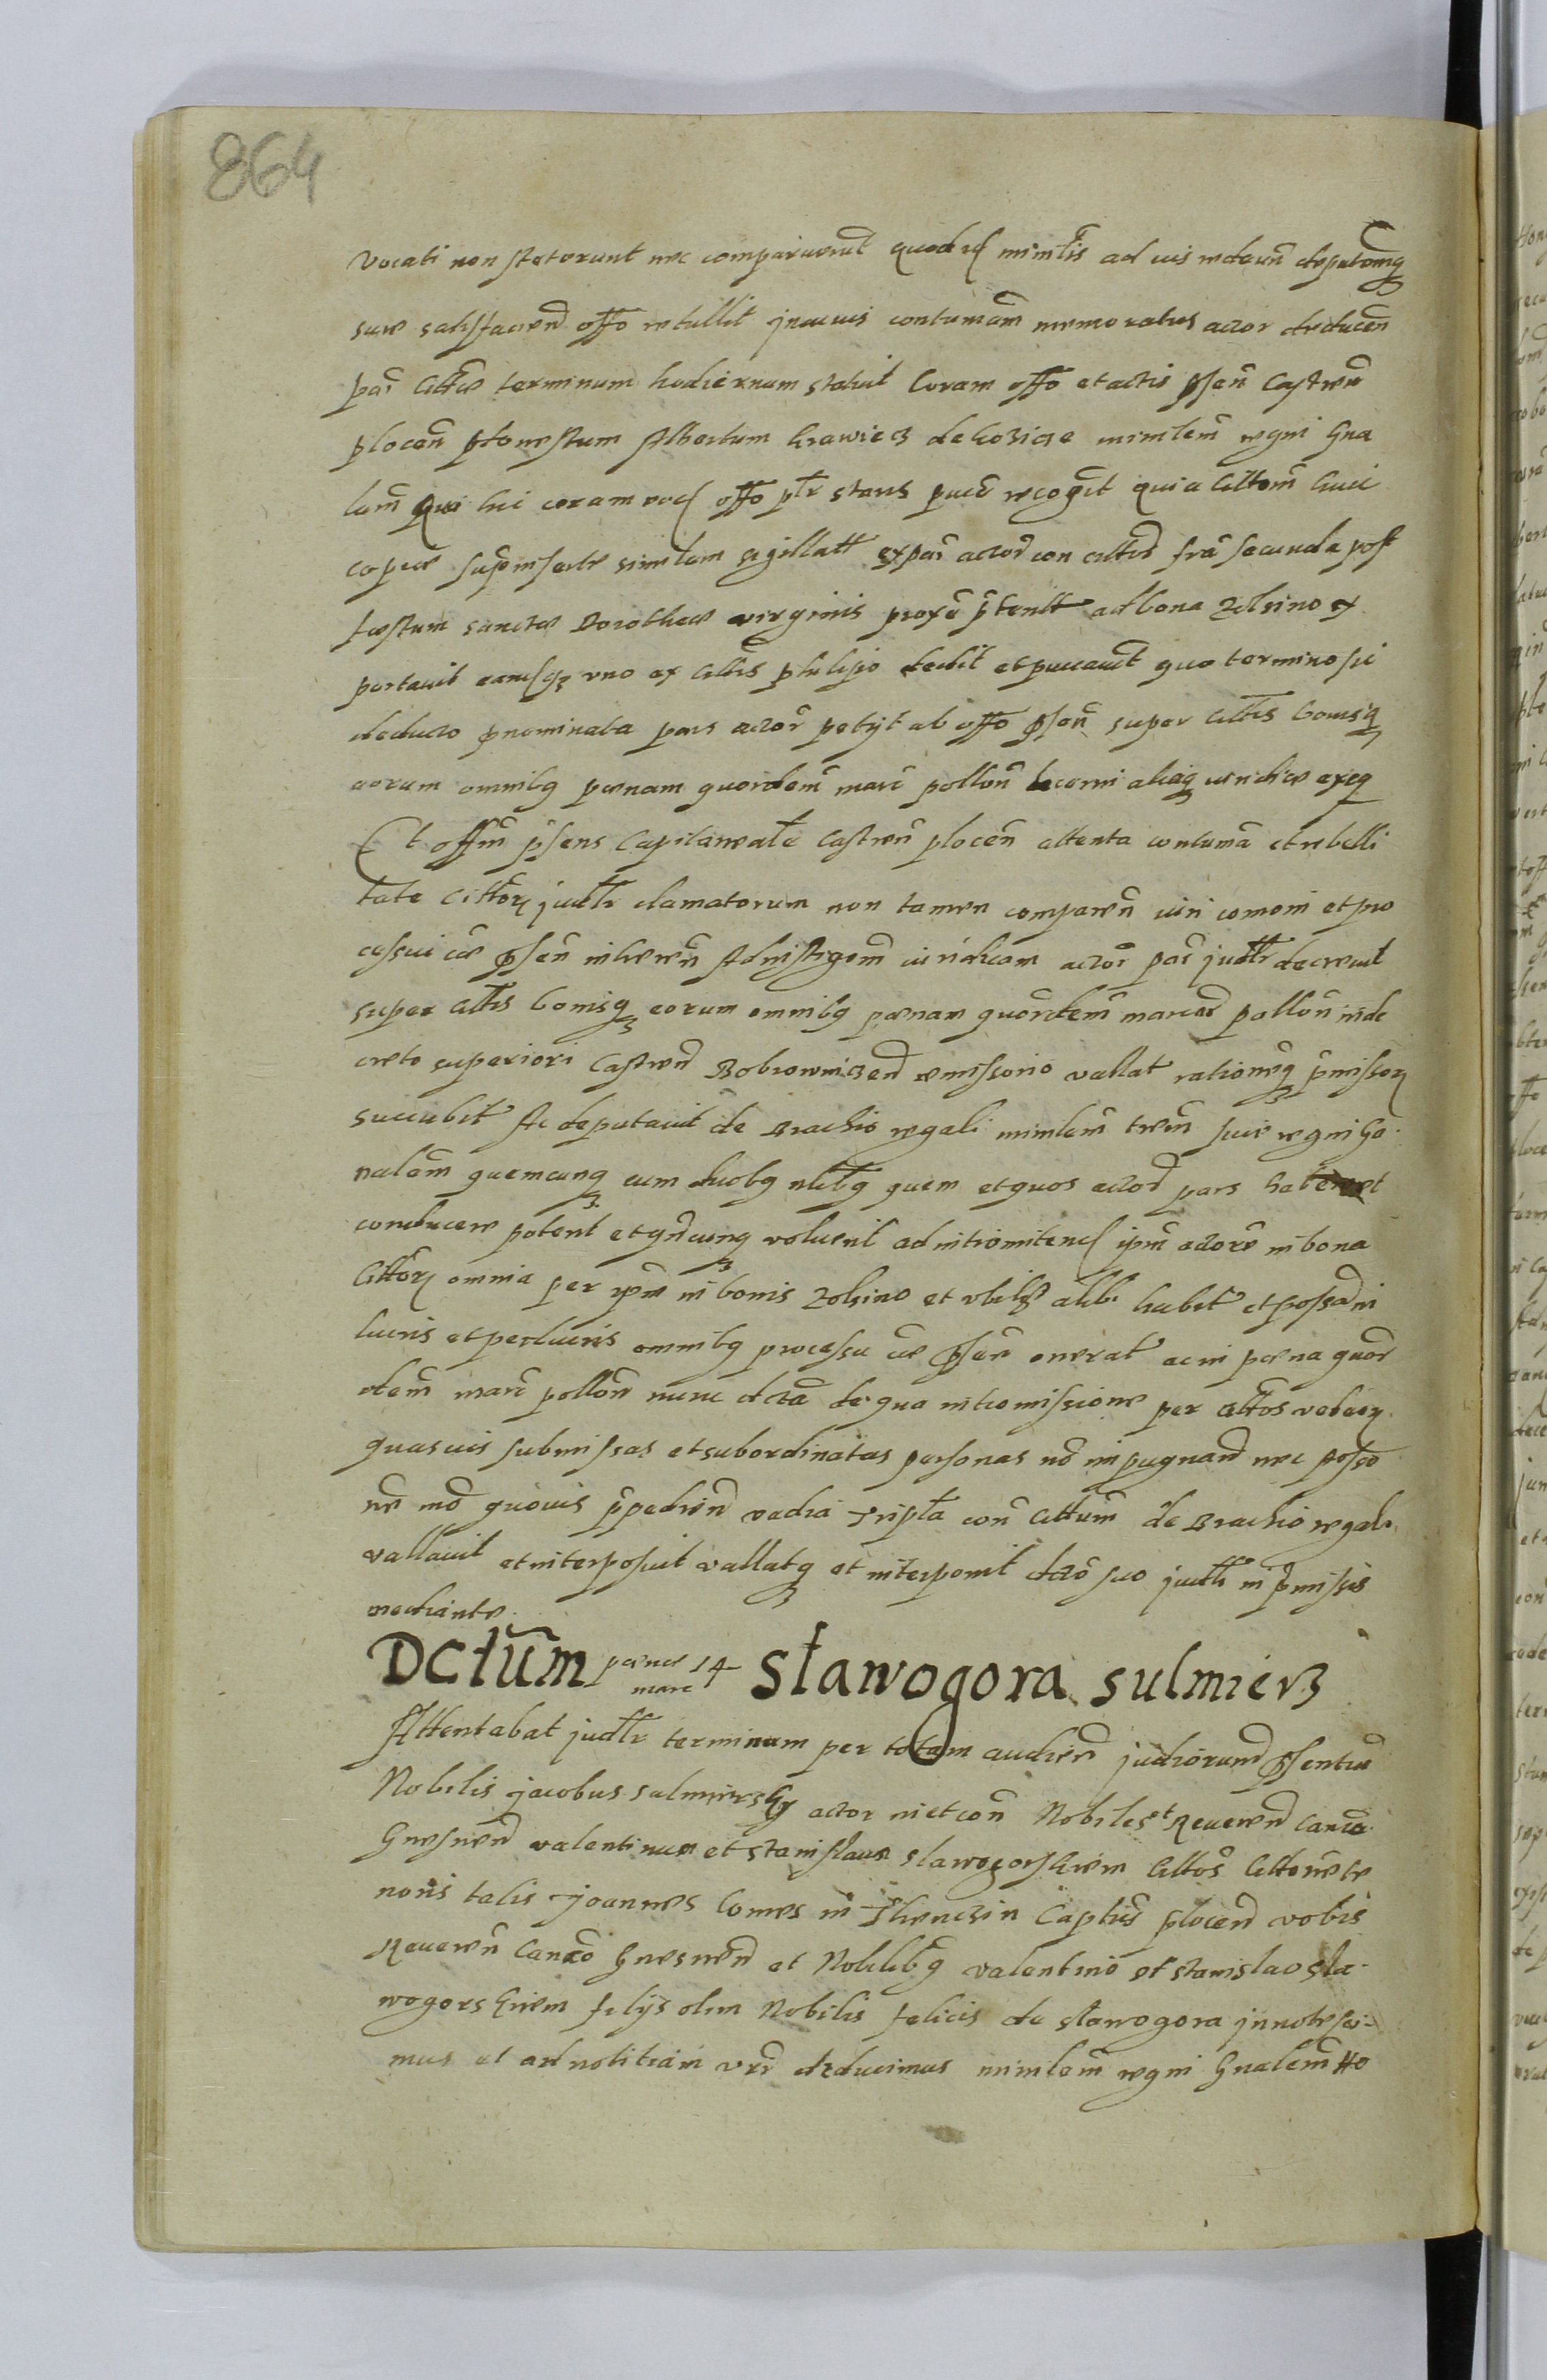 864
vocati non steterunt nec comparuerunt quod id minilis ad vis
sue satisfacien offo retullit contumam memoratus actor deducen
par citte terminum hodiernum statuit Coram offo et actis psen Castren
plocen phonestum Albertum krawiecz de kozicze minilem regni Gna
lem Qui hic coram offo plr stans puce recogt quia cittom huic
copie supinserte similem sigillat ex par actor con cittos fra secunda post
festum sancte Dorothee virginis prox ptenlt ad bona zolsino ex
portavit eamqz uno ex cittis philipo dedit et puecavit quo termino sic
deducto pnominata pars actor petyt ab offo psen super cittis bonisq
eorum omnibq penam quordem marc pollon decerni aliaq iuridice exeq
Et offm psens Capitaneale Castren plocen attenta contuma et rebelli
tate cittorz judlr clamatorum non tamen comparen iuri comoni et pro
cessui ce psen inheren Adnistrgom iuridicam actor par judlr decrevit
super cittis bonisqz eorum omnibq penam quordem marcar pollon in de
creto superiori Castren Bobrownicen remissorio vallat rationeqz pmissorz
succubit Ac deputavit de Brachio regali minilem trem sue regni Ge
nalem quemcunqz cum duobq nlibq quem et quos actor pars haberet
conducere potent et qncunqz voluerit ad intromitend ipm actore in bona
cittorz omnia per ipm in bonis zolsino et ubilqz alibi habit et possa in
lucris et perlucris omnibq processu ce psen onerat ac in pena quor
dem marc pollon nunc dcta de qua intromissione per cittos
quasvis submissas et subordinatas personas no inpugnand nec posse
ne mo quovis ppedien vadia tripla con cittum de Brachio regali
vallavit et interposuit vallatqz et interponit dcto suo judlr in pmissis
mediante
Dctum pene marc 14 Slawogora sulmierz
Attentabat judlr terminum per totam audien judiorum psentiu
Nobilis jacobus sulmiersky actor in et con Nobiles et Reueren Canco
Gnesnen valentinum et stanislaum slawogorskiem cittos
noris talis Joannes Comes in Thenczin Captus plocen vobis
Reueren Canco Gnesnen et Nobilibq valentino et stanislao sla
wogorskiem filys olim Nobilis felicis de slawogora jnnotesci-
mus et ad notitiam vra deducimus minilem regni Gnalem Ho